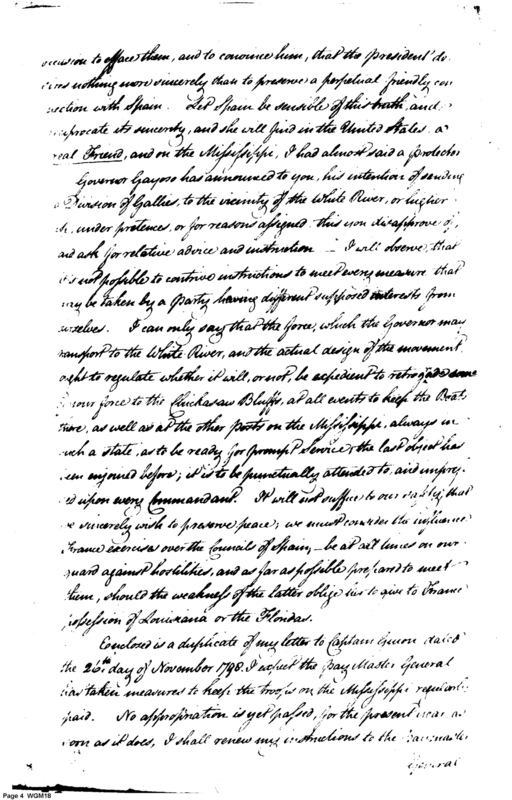 occasion to efface them, and to convince him, that the President de
sires nothing more sincerely than to preserve a perpetual friendly con
nection with Spain. Let Spain be sensible of this truth, and
reciprocate its sincerity, and she will find in the United States a
real Friend, and on the Mississippi, I had almost said a protector
Governor Gayoso has announced to you, his intention of sending
a Division of Gallies, to the vicinity of the White River, or higher
under pretences, or for reasons assigned this you disapprove of,
and ask for relative advice and instruction — I will observe, that
it is not possible to contrive instructions to meet every measure that
may be taken by a party having different supposed interests from
ourselves. I can only say that the force, which the Governor may
transport to the White River, and the actual design of the movement
ought to regulate whether it will, or not, be expedient to retrograde some
of your force to the Chickasaw Bluffs, at all events to keep the Post
there, as well as at the other posts on the Mississippi, always in
such a state, as to be ready for prompt Service, the last object has
been enjoined before; it is to be punctually attended to, and impres
ed upon every Commandant. It will not suffice to our safety, that
we sincerely wish to preserve peace; we must consider the influence
France exercises over the Councils of Spain,—be at all times on our
guard against hostilities, and as far as possible prepared to meet
them, should the weakness of the latter oblige her to give to France
possession of Louisiana or the Floridas.
Enclosed is a duplicate of my letter to Captain Guion dated
the 26th day of November 1798. I expect the Pay Master General
has taken measures to keep the troops on the Mississippi regularly
paid. No appropriation is yet passed, for the present year as
soon as it does, I shall renew my instructions to the Paymaster
General
Page 4 WGM18